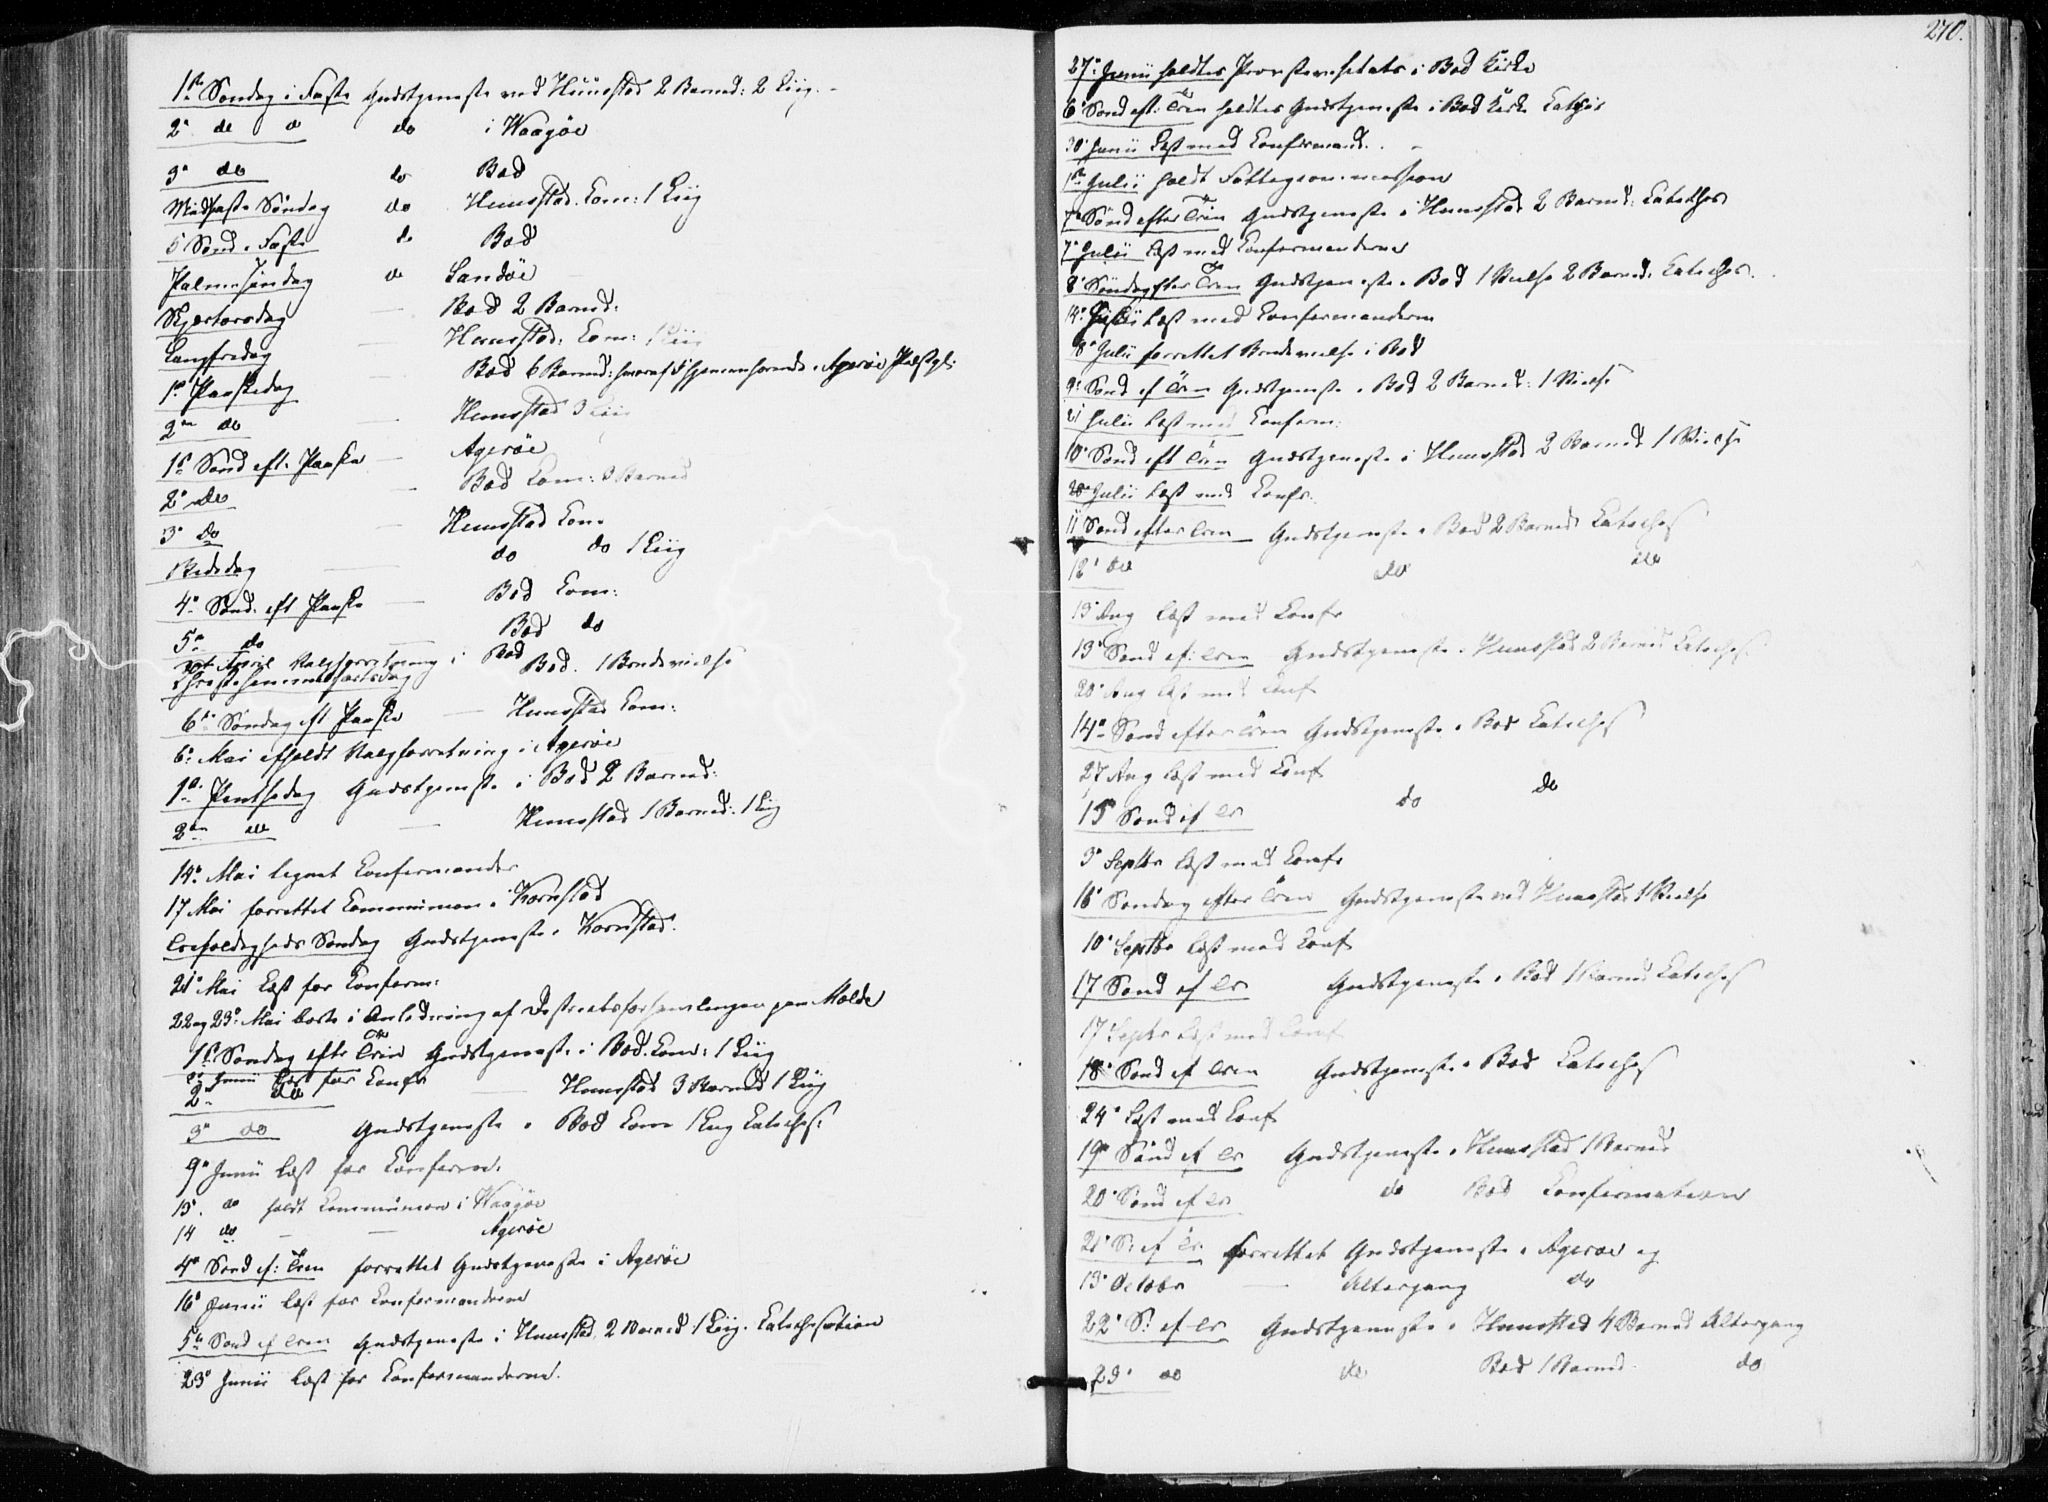 1ste Søndag i Faste Gudstjeneste ved Hunestad 2 Barned: 2 Liig.
2. do do do i Waagøe
3. do do Bod
Midfaste Søndag do Hunestad. Com: 1 Liig
5 Sønd. Faste do Bod
Palmesøndag do Sandøe
Skjærtorsdag Bod 2 Barned:
Langfredag Hunestad. Com: 1 Liig
1ste Paaskedag Bod 6 Barned: Agerøe Præstgl:
2den do Hunestad 3 Liig
1ste Sønd eft. Paaske Agerøe
2. do Bod Com: 3 Barned
3. do Hunestad Com
Bededag do do 1 Liig
4. Sønd. eft Paaske Bod Com:
5. do Bod do
April Valgforretning i Bod
Christi Himmelfartsdag Bod. 1 Brudevielse
6. Søndag eft Paaske Hunestad Com:
6. Mai afholdt Valgforretning i Agerøe
1ste Pintsedag Gudstjeneste i Bod 2 Barned:
2den do Hunestad 1 Barned: 1 Liig
14. Mai tegnet Confirmander
17 Mai forrettet Communion i Kornstad
Trefoldigheds Søndag Gudstjeneste i Kornstad.
21. Mai Læst for Conform:
22 og 23. Mai borte i Anledning af Districtsforsamlingen paa Molde
1ste Søndag efter Trin Gudstjeneste i Bod. Com: 1 Liig
Junii læst for Conf
2. do Hunestad 3 Barned 1 Liig
3. do Gudstjeneste i Bod Com 1 Liig Cateches:
9. Junii læst for Conform.
13. do holdt Communion i Waagøe
14 do Agerøe
4. Sønd ef: Trin forrettet Gudstjeneste i Agerøe
16. Junii læst for Confirmanderne
5te Sønd ef Trin Gudstjeneste i Hunestad. 2 Barned 1 Liig. Catechisation
23. Junii læst for Confirmanderne.
270.
27. Junii holdtes Provstevisitats i Bod Kirke
6. Sønd eft. Trin holdtes Gudstjeneste i Bod Kirke Cathes
30. Junii læst med Confirmand.
1ste Julii holdt Fattigcommission
7. Sønd efter Trin Gudstjeneste i Hunestad 2 Barned. Cateches
7. Julii læst med Confirmanderne
8. Søndag efter Trin Gudstjeneste i Bod 1 Vielse 2 Barned. Cateches.
14. Julii læst med Confirmanderne
18. Julii forrettet Brudevielse i Bod
9. Sønd ef Trin Gudstjeneste i Bod 2 Barned: 1 Vielse
21 Julii læst med Conform:
10. Sønd eft Trin Gudstjeneste i Hunestad 2 Barned 1 Vielse
28. Julii læst med Conf.
11 Sønd efter Trin Gudstjeneste i Bod 2 Barned Cateches
12. do do do
13. Aug læst med Conf
13. Sønd ef: Trin Gudstjeneste i Hunestad 2 Barned Cateches
20. Aug læst med Conf
14. Sønd efter Trin Gudstjeneste i Bod Cateches
27 Aug læst med Conf
15 Sønd ef Tr do do
3. Septbr læst med Conf
16. Søndag efter Trin Gudstjeneste ved Hunestad 1 Vielse
10. Septbr læst med Conf
17 Sønd ef Tr Gudstjeneste i Bod 1 Barned Cateches
17 Septbr læst med Conf
18. Sønd ef Trin Gudstjeneste i Bod Cateches
24. læst med Conf
19. Sønd ef Tr Gudstjeneste i Hunestad 1 Barned
20. Sønd ef Tr do Bod Confirmation
21. S: ef Tr. forrettet Gudstjeneste i Agerøe og
13. October Altergang do
22. S: ef Tr Gudstjeneste i Hunestad 4 Barned Altergang
23. do do Bod 1 Barned do